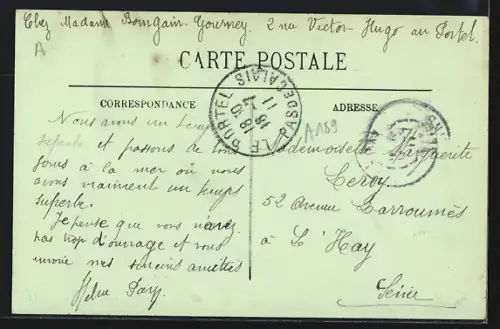 Chez Madame Bourgain-Gourney. 2 rue Victor-Hugo au Portel.
A
CARTE POSTALE
CORRESPONDANCE
ADRESSE
LE PORTEL
PAS DE CALAIS
A189
Nous avons un temps
superbe et passons de
à la mer où nous
avons vraiment un temps
superbe.
Je pense que vous n'avez
pas trop d'ouvrage et vous
envoie nos sincères amitiés
Mademoiselle Marguerite
Leroy
52 Avenue Larroumès
à L'Hay
Seine